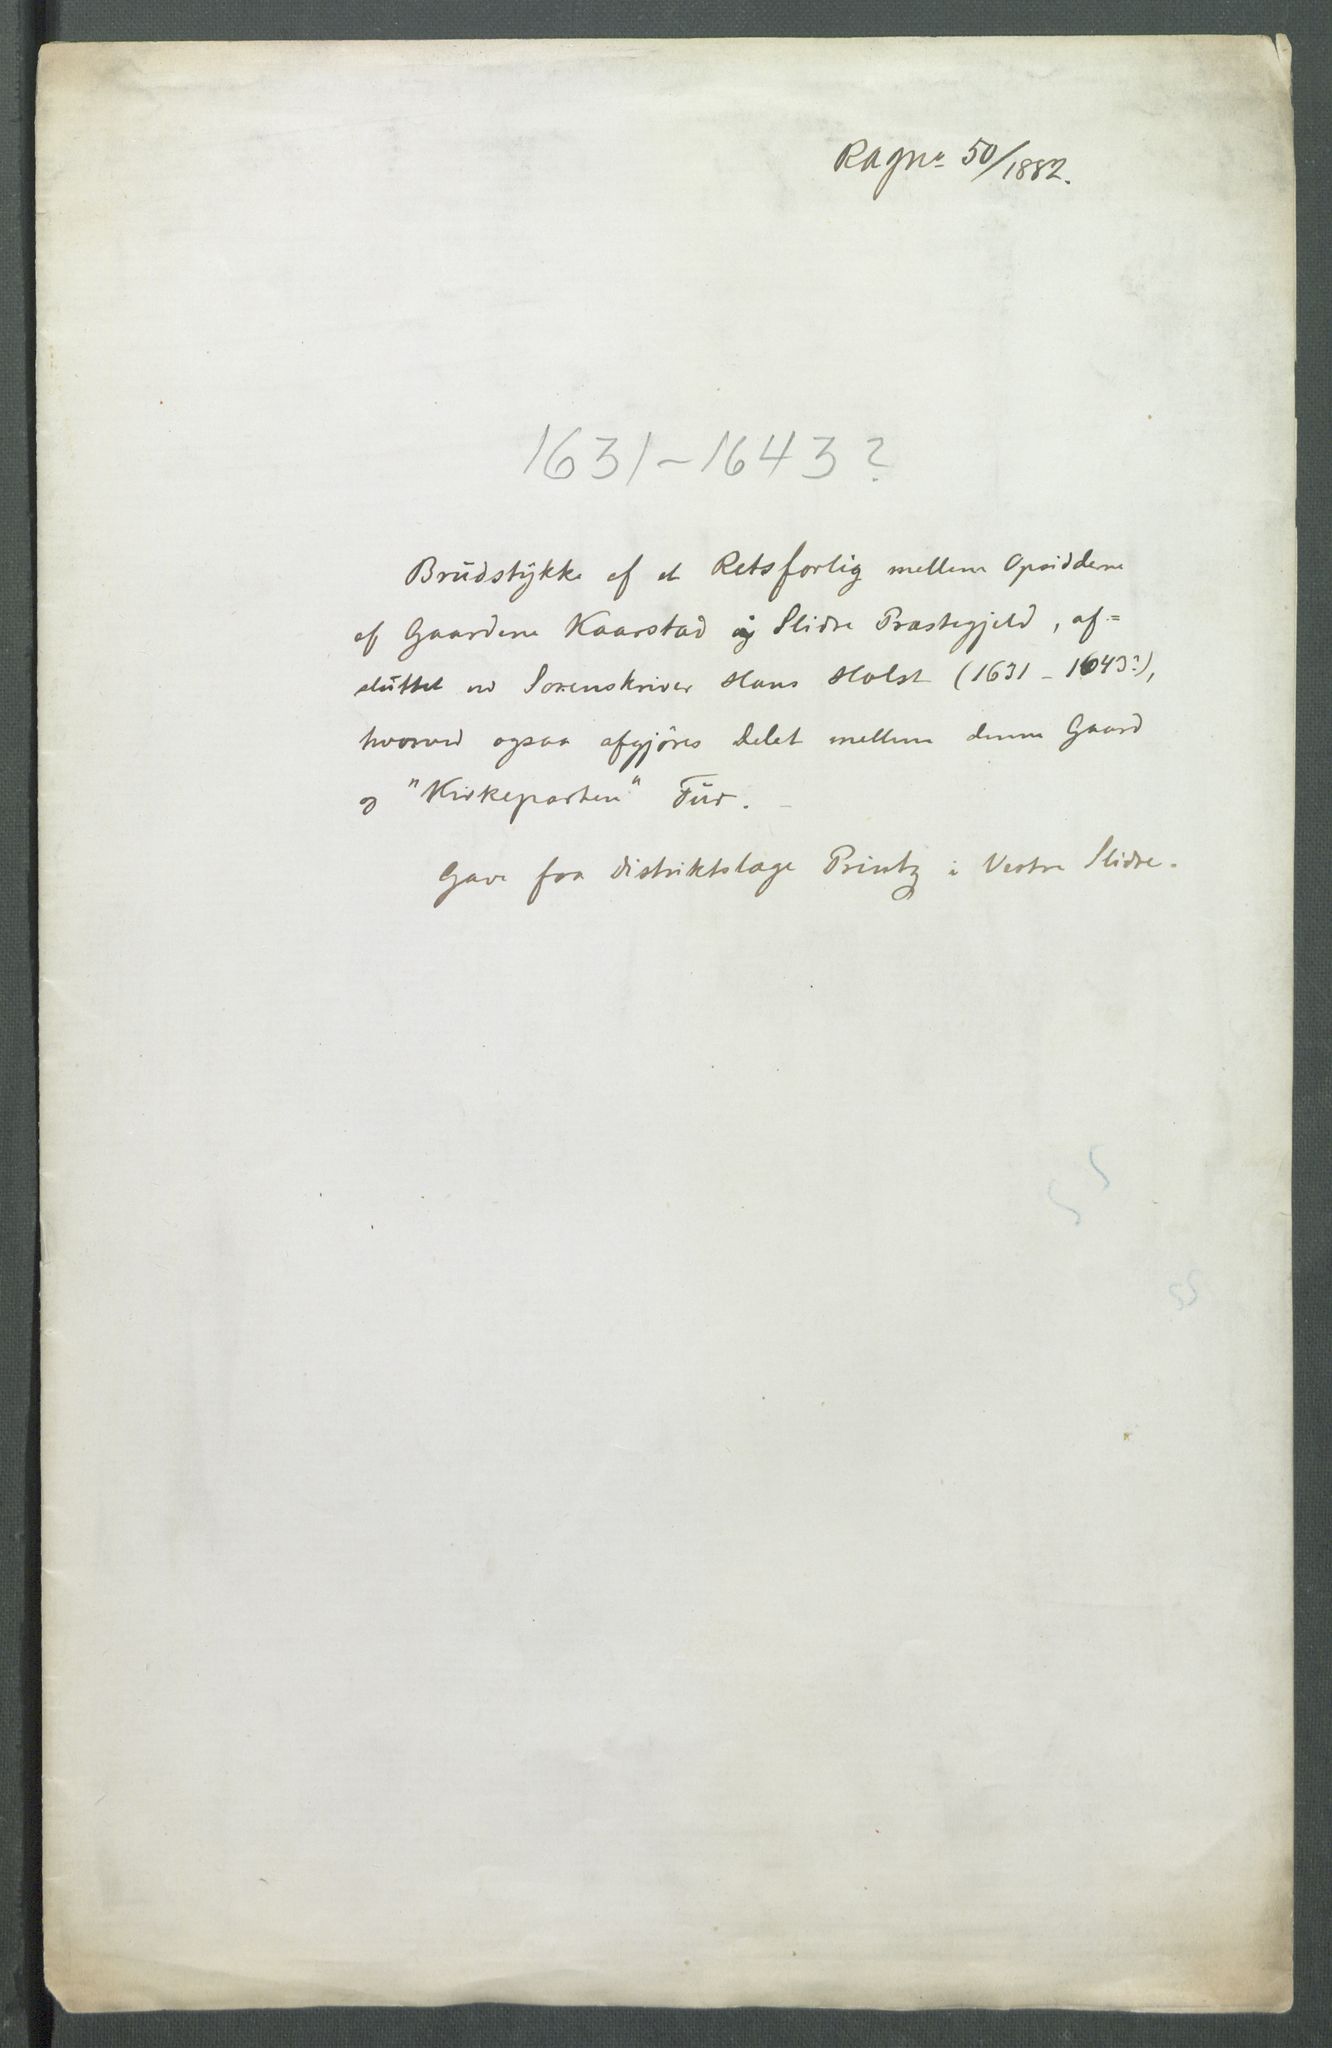 RAgn: 50/1882.
1631-1643?
Brudstykke af et Retsforlig mellem Opsidderne
af Gaardene Kaarstad i Slidre Præstegjeld, af=
sluttet ved Sorenskriver Hans Holst (1631 - 1643?),
hvorved ogsaa afgjöres Delet mellem denne Gaard
og "Kirkeparten" Fur.
Gave fra Distriktslæge Printz i Vestre Slidre.